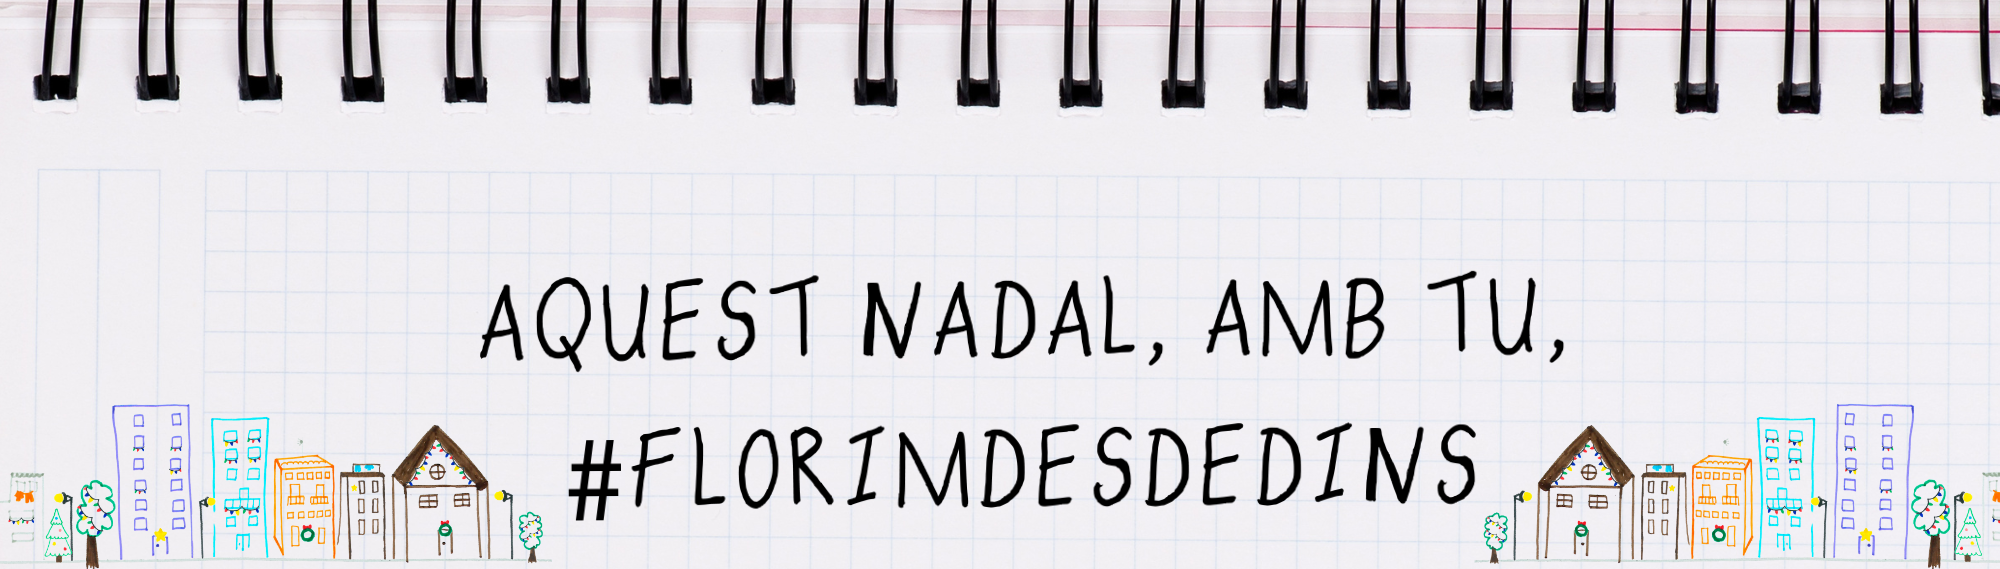 AQUEST NADAL, AMB TU,
#FLORIMDESDEDINS